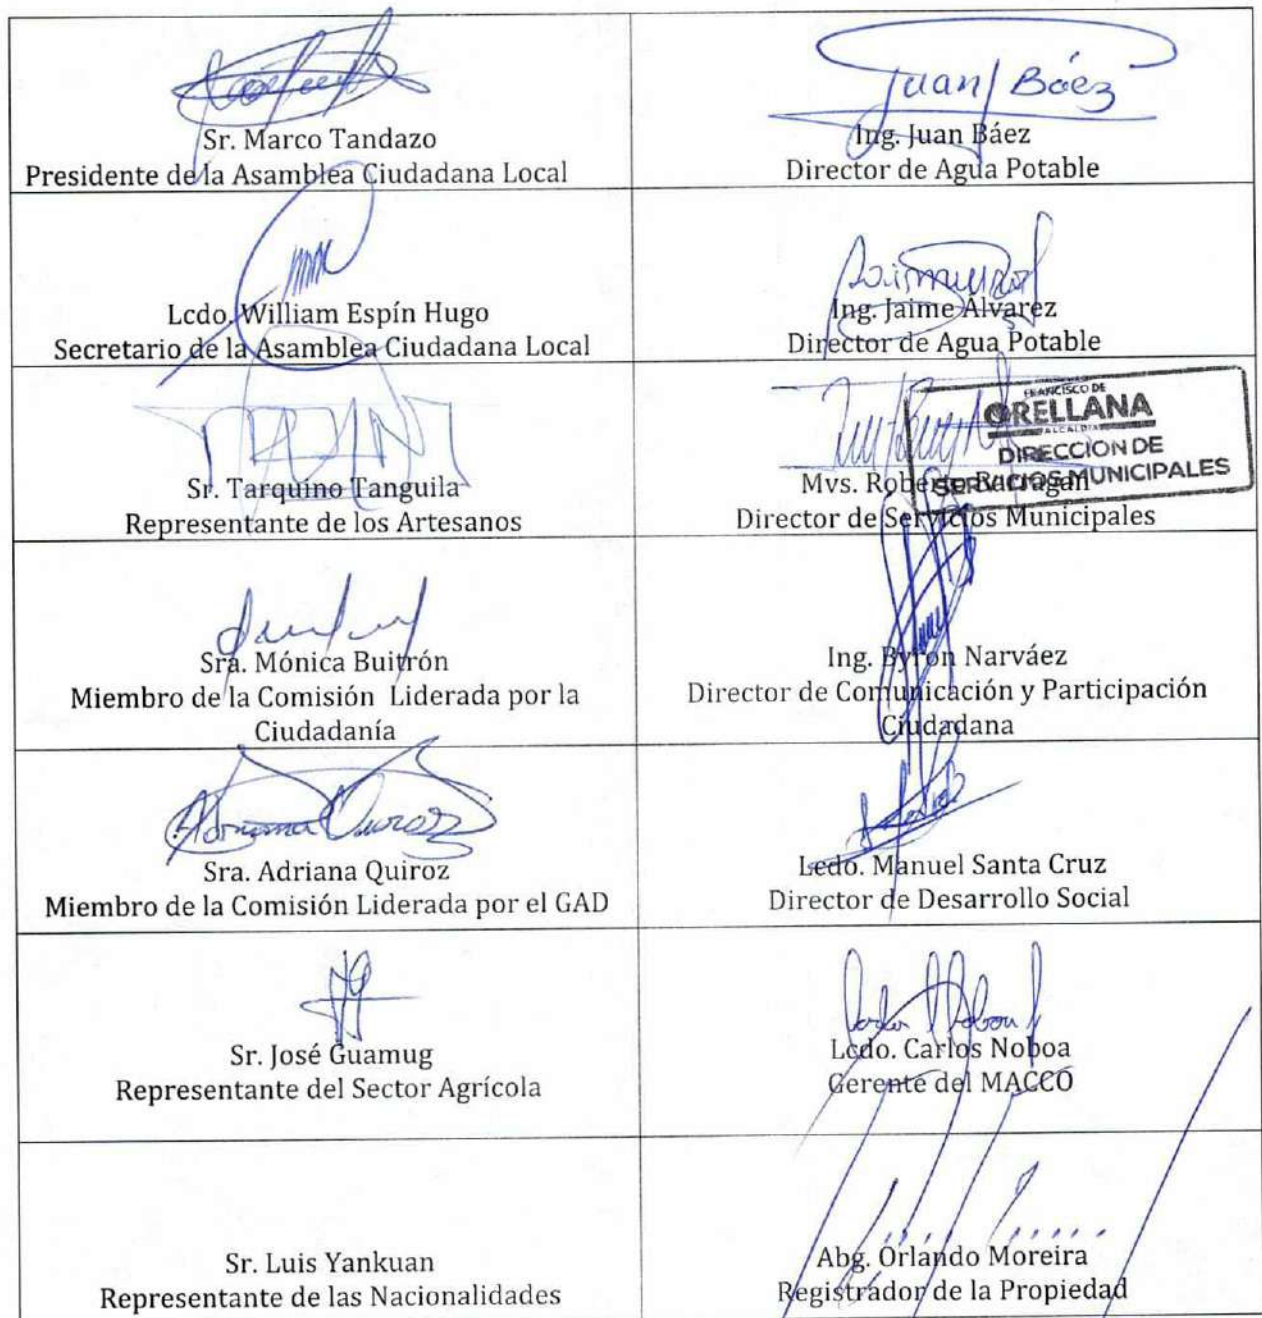 Sr. Marco Tandazo
Presidente de la Asamblea Ciudadana Local
Juan Báez
Ing. Juan Báez
Director de Agua Potable
Lcdo. William Espín Hugo
Secretario de la Asamblea Ciudadana Local
Ing. Jaime Álvarez
Director de Agua Potable
Sr. Tarquino Tanguila
Representante de los Artesanos
FRANCISCO DE
ORELLANA
ALCALDÍA
DIRECCION DE
SERVICIOS MUNICIPALES
Mvs. Roberto Barragan
Director de Servicios Municipales
Sra. Mónica Buitrón
Miembro de la Comisión Liderada por la
Ciudadanía
Ing. Byron Narváez
Director de Comunicación y Participación
Ciudadana
Adriana Quiroz
Sra. Adriana Quiroz
Miembro de la Comisión Liderada por el GAD
Lcdo. Manuel Santa Cruz
Director de Desarrollo Social
Sr. José Guamug
Representante del Sector Agrícola
Carlos Noboa
Lcdo. Carlos Noboa
Gerente del MACCO
Sr. Luis Yankuan
Representante de las Nacionalidades
Abg. Orlando Moreira
Registrador de la Propiedad